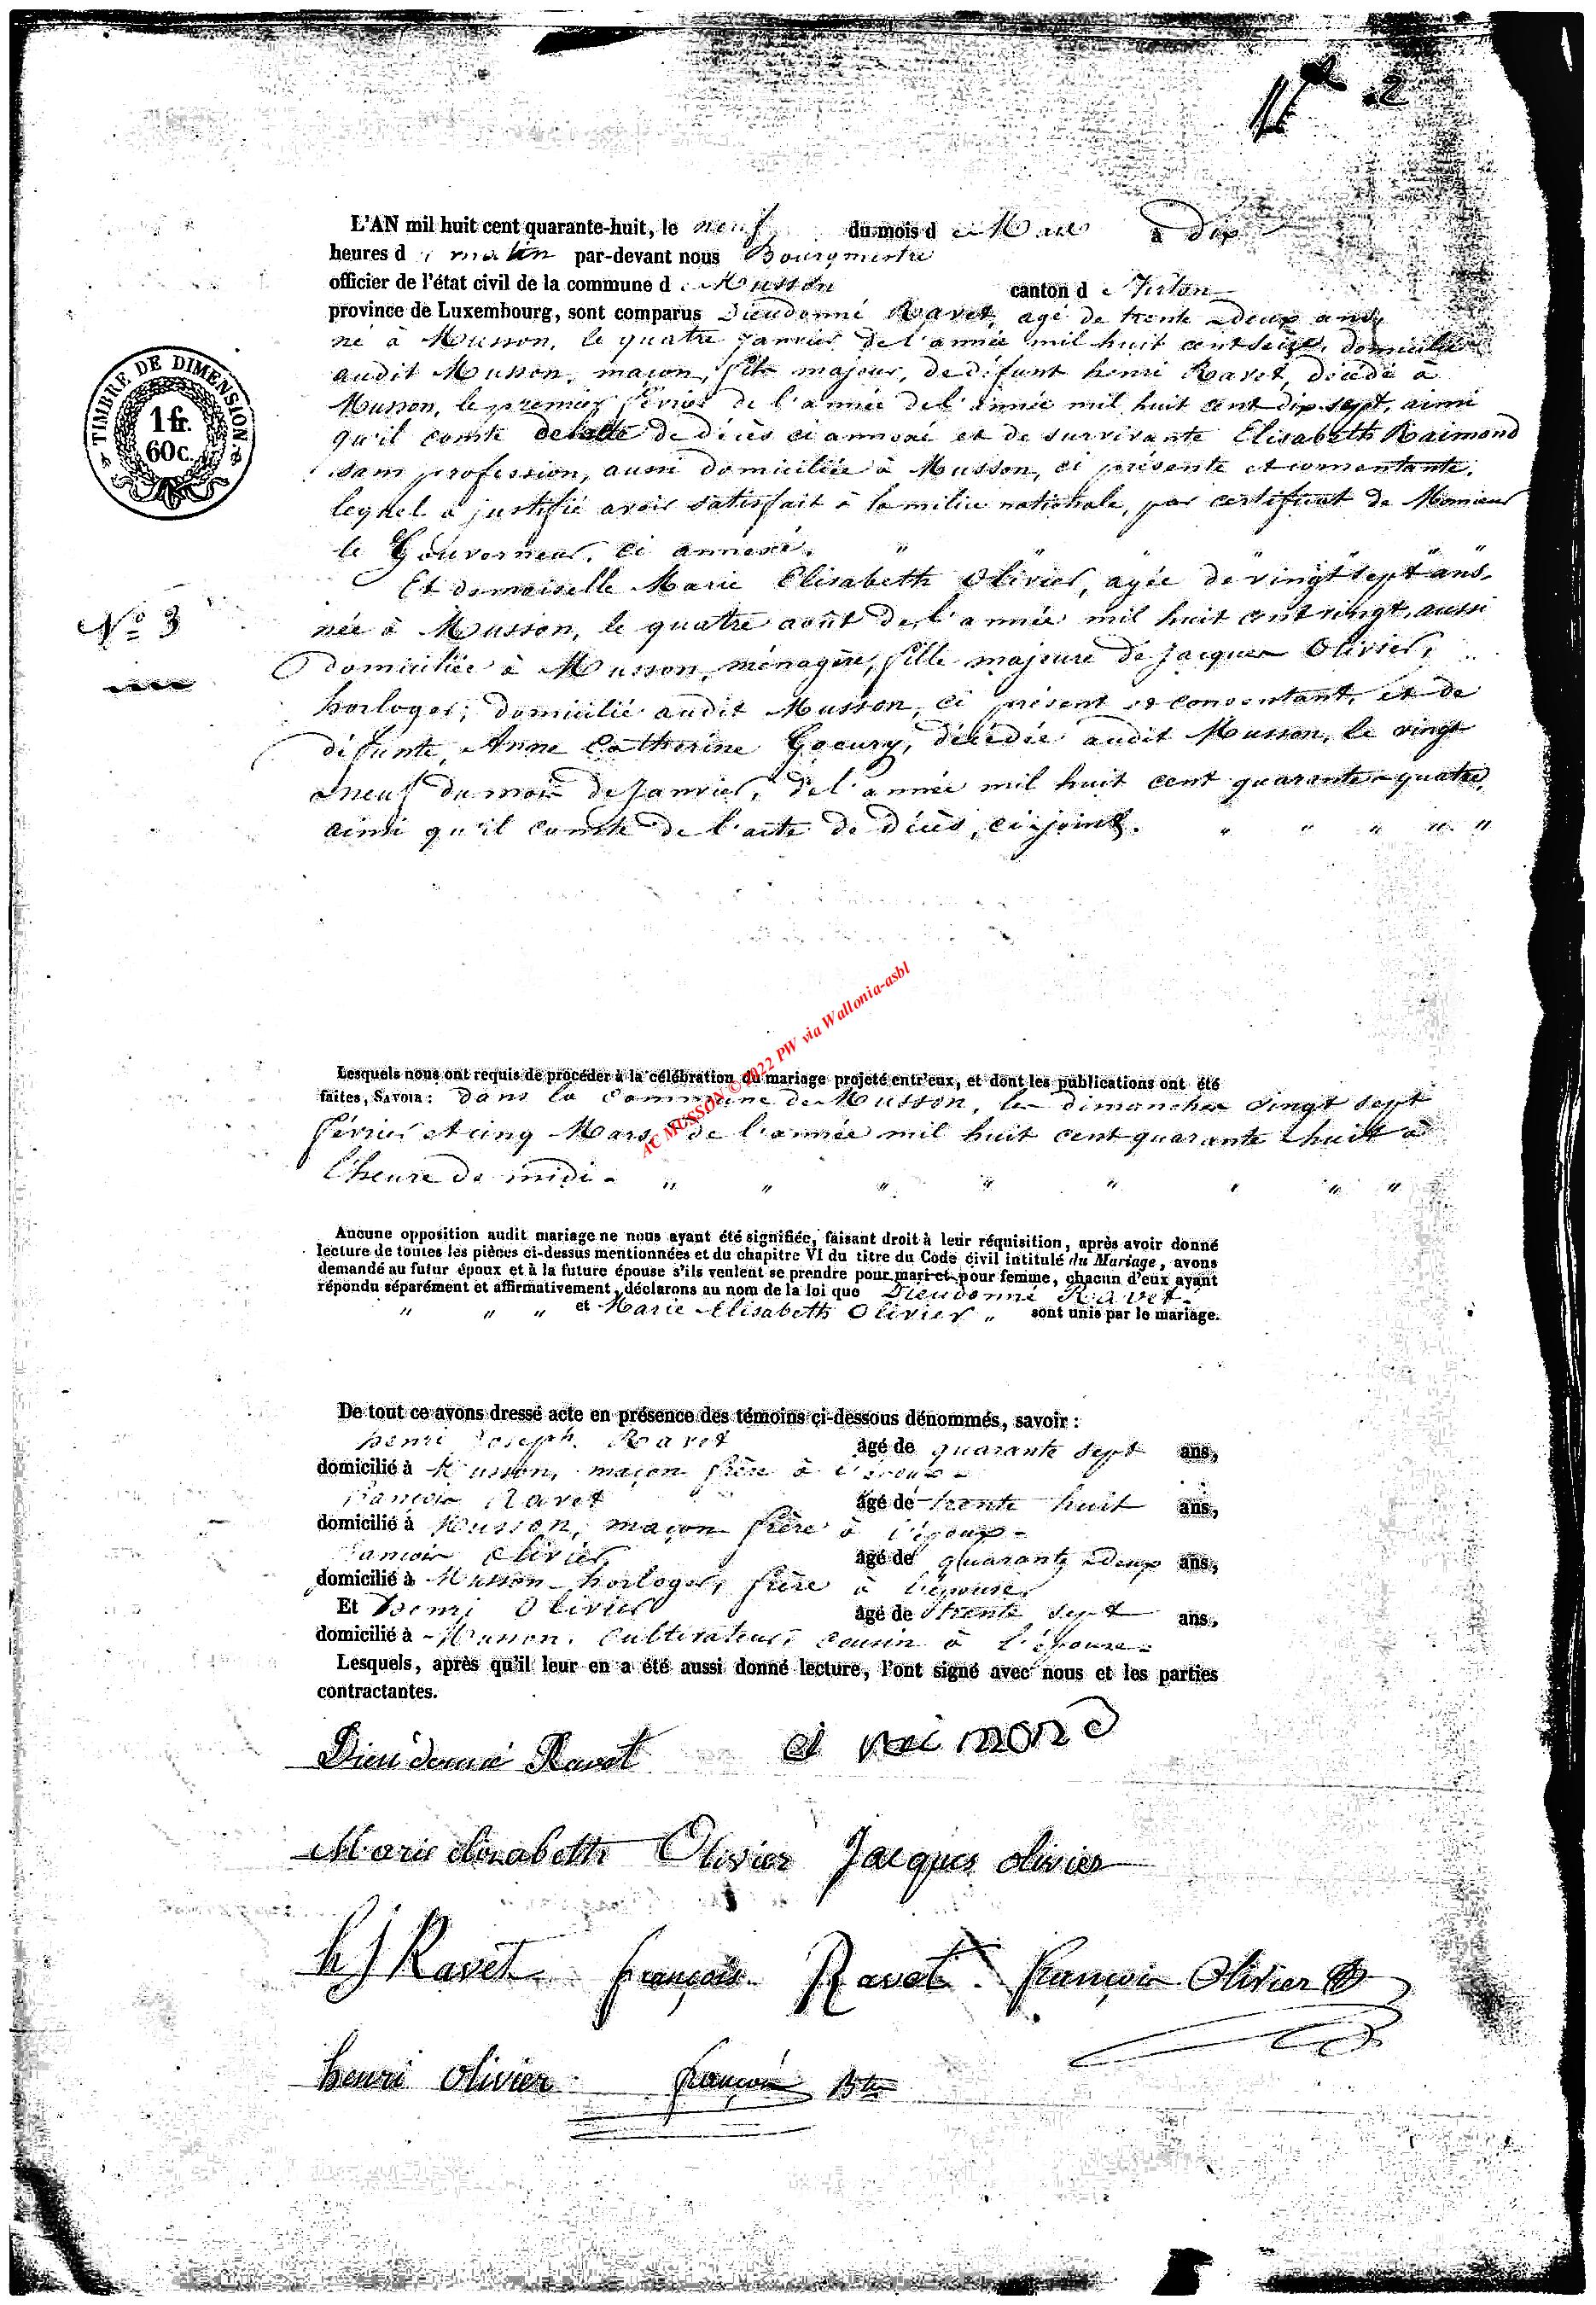 2
L'AN mil huit cent quarante-huit, le neuf du mois de Mars à dix
heures du matin par-devant nous Bourgmestre
officier de l'état civil de la commune de Musson canton de Virton
province de Luxembourg, sont comparus Dieudonné Ravet, agé de trente deux ans,
né à Musson, le quatre janvier de l'année mil huit cent seize, domicilié
audit Musson, maçon, fils majeur, de défunt henri Ravet, décédé à
Musson, le premier février de l'année de l'année mil huit cent dix sept, ainsi
qu'il conste de l'acte de décès ci annexé et de survivante Elisabeth Raimond
sans profession, aussi domiciliée à Musson, ci présente et consentante,
lequel a justifié avoir satisfait à la milice nationale, par certificat de Monsieur
le Gouverneur, ci annexé. " " " " " " "
Et demoiselle Marie Elisabeth Olivier, agée de vingt sept ans,
née à Musson, le quatre août de l'année mil huit cent vingt, aussi
domiciliée à Musson, ménagère, fille majeure de Jacques Olivier,
horloger, domicilié audit Musson, ci présent et consentant, et de
défunte, Anne Catherine Goeury, décédée audit Musson, le vingt
neuf du mois de Janvier, de l'année mil huit cent quarante-quatre,
ainsi qu'il conste de l'acte de décès, ci-joint. " " " " "
TIMBRE DE DIMENSION.
1 fr.
60c.
No 3
Lesquels nous ont requis de procéder à la célébration du mariage projeté entr'eux, et dont les publications ont été
faites, SAVOIR : dans la commune de Musson, les dimanches vingt sept
février et cinq Mars de l'année mil huit cent quarante huit à
l'heure de midi - " " " " " " " "
Aucune opposition audit mariage ne nous ayant été signifiée, faisant droit à leur réquisition, après avoir donné
lecture de toutes les pièces ci-dessus mentionnées et du chapitre VI du titre du Code civil intitulé du Mariage, avons
demandé au futur époux et à la future épouse s'ils veulent se prendre pour mari et pour femme, chacun d'eux ayant
répondu séparément et affirmativement, déclarons au nom de la loi que Dieudonné Ravet
" " " et Marie Elisabeth Olivier " sont unis par le mariage.
De tout ce avons dressé acte en présence des témoins ci-dessous dénommés, savoir :
henri Joseph Ravet âgé de quarante sept ans,
domicilié à Musson, maçon frère à l'époux -
françois Ravet âgé de trente huit ans,
domicilié à Musson, maçon frère à l'époux -
françois Olivier, âgé de quarante deux ans,
domicilié à Musson horloger, frère à l'épouse,
Et henri Olivier âgé de trente sept ans,
domicilié à Musson, cultivateur, cousin à l'épouse -
Lesquels, après qu'il leur en a été aussi donné lecture, l'ont signé avec nous et les parties
contractantes.
Dieudonné Ravet el raimond
Marie elisabeth Olivier Jacques olivier
h J Ravet françois Ravet françois Olivier
henri olivier françois Btr
AC MUSSON © 2022 PW via Wallonia-asbl